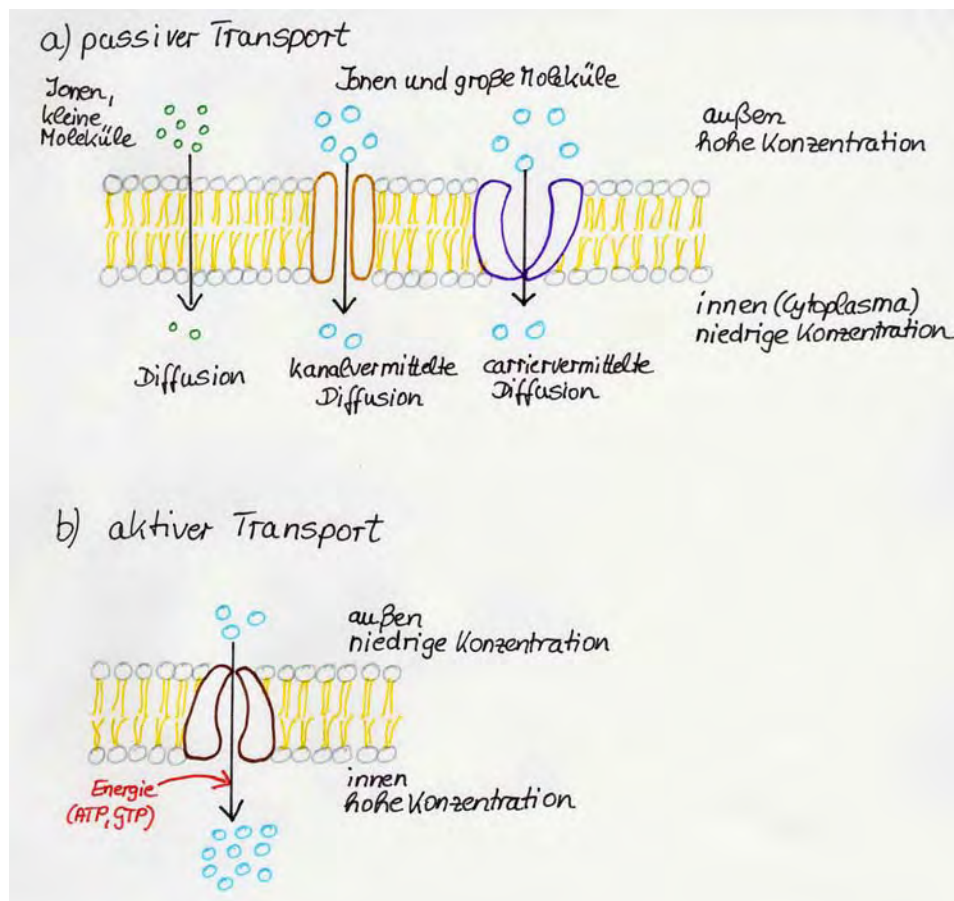 a) passiver Transport
Jonen,
kleine
Moleküle
Jonen und große Moleküle
außen
hohe Konzentration
innen (Cytoplasma)
niedrige Konzentration
Diffusion
kanalvermittelte
Diffusion
carriervermittelte
Diffusion
b) aktiver Transport
außen
niedrige Konzentration
Energie
(ATP, GTP)
innen
hohe Konzentration